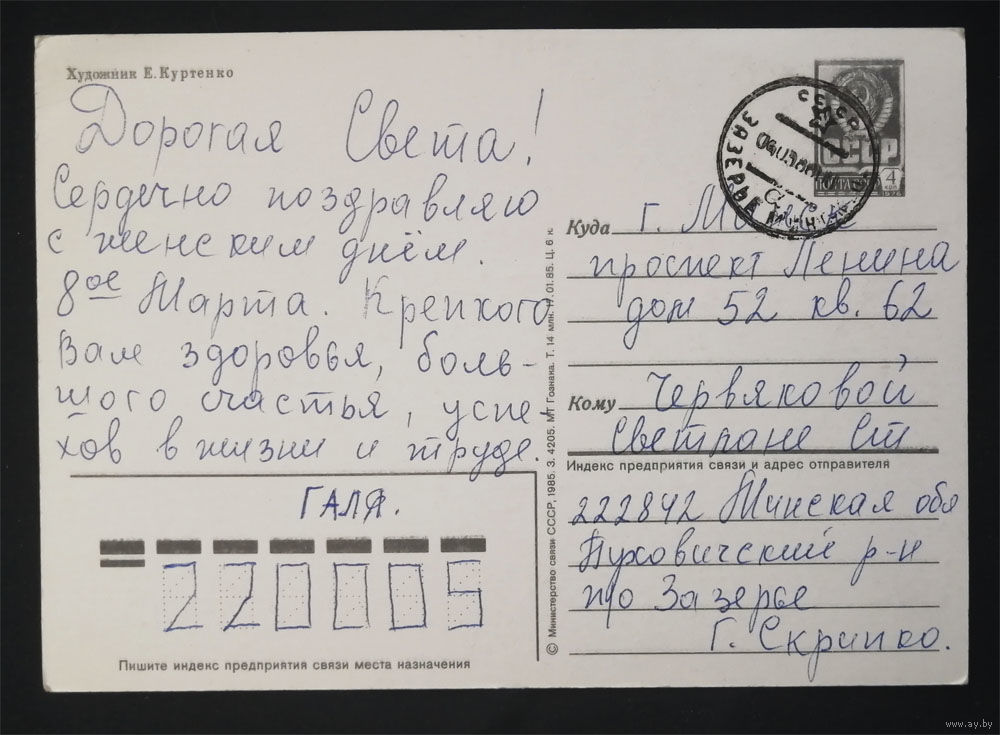 Художник Е. Куртенко
Дорогая Света!
Сердечно поздравляю
с женским днём.
8ое Марта. Крепкого
Вам здоровья, боль-
шого счастья, успе-
хов в жизни и труде.
ГАЛЯ.
220005
Пишите индекс предприятия связи места назначения
© Министерство связи СССР, 1985. З. 4205. МТ Гознака. Т. 14 млн. 17.01.85. Ц. 6 к.
СССР
ЗАЗЕРЬЕ МИНСК.
СССР
ПОЧТА
4
КОП
Куда г.
проспект Ленина
дом 52 кв. 62
Кому Червяковой
Светлане Ст
Индекс предприятия связи и адрес отправителя
222842 Минская обл
Пуховичский р-н
п/о Зазерье
Г. Скрипко.
www.ay.by